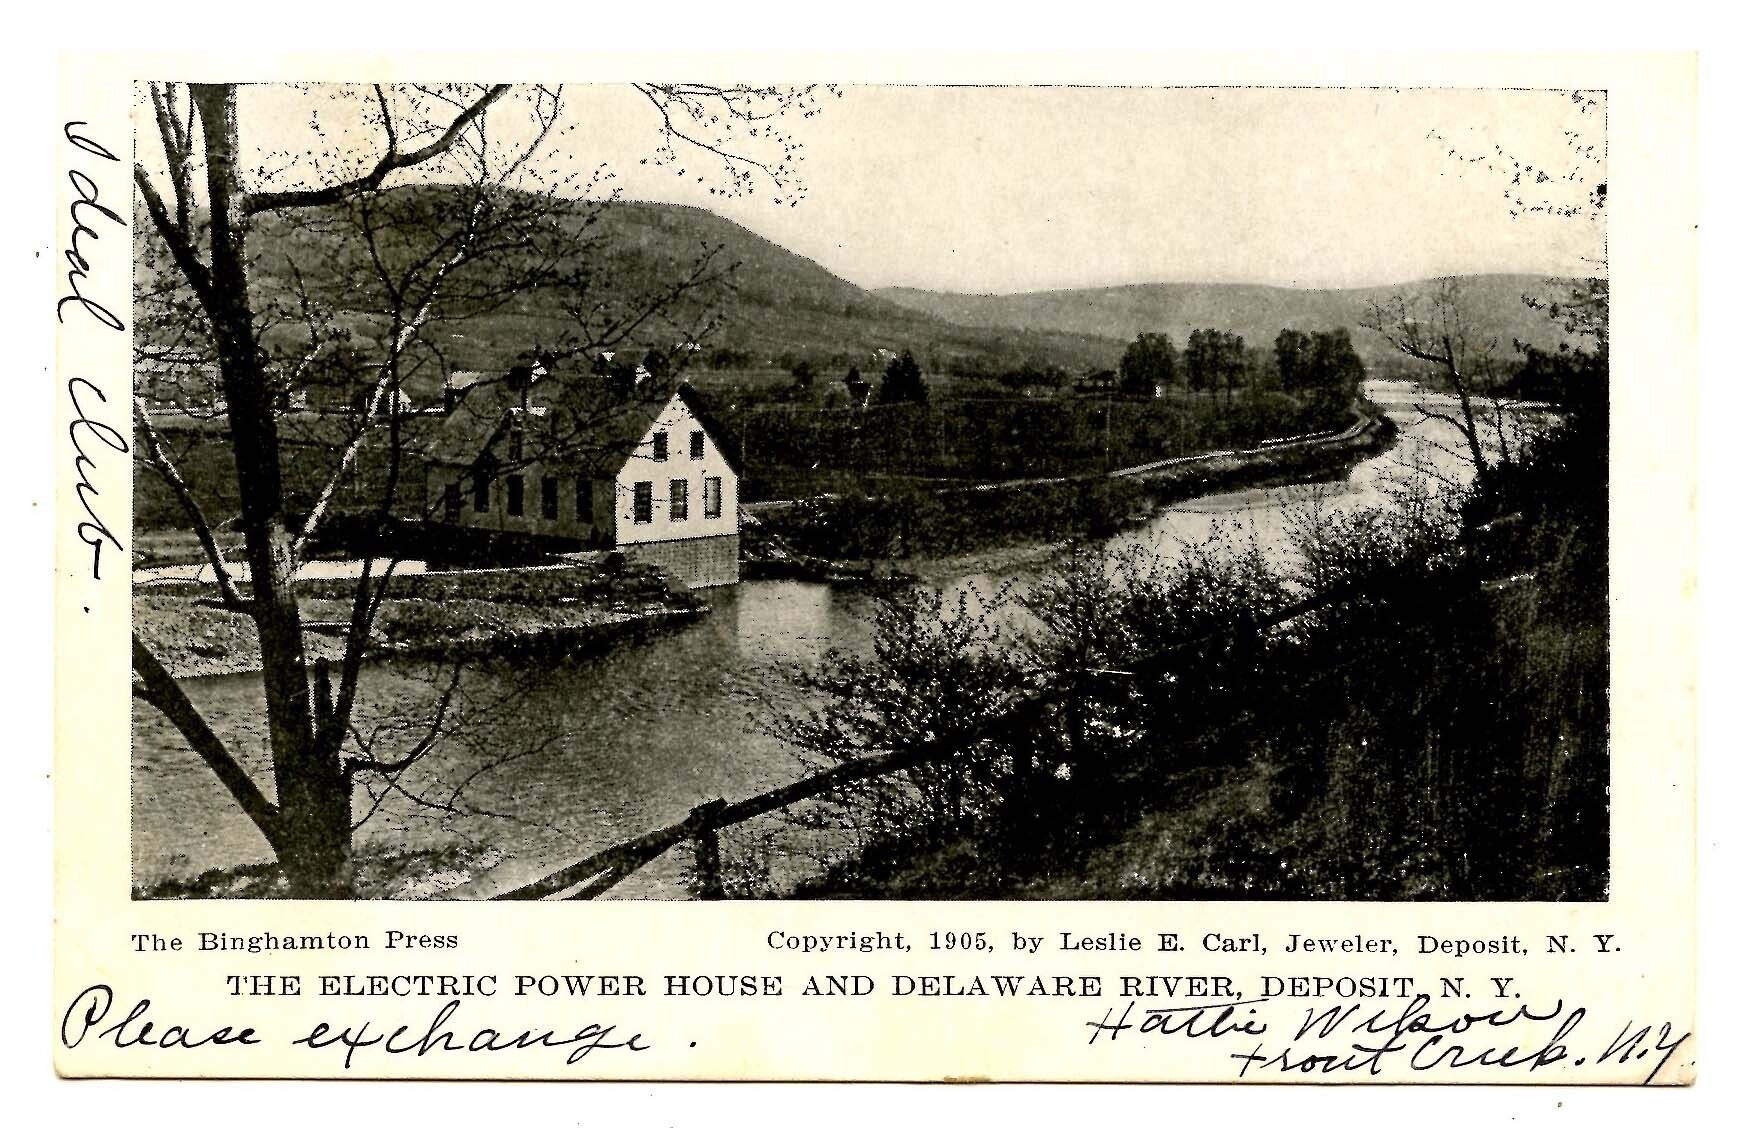 Ideal Club.
The Binghamton Press
Copyright, 1905, by Leslie E. Carl, Jeweler, Deposit, N. Y.
THE ELECTRIC POWER HOUSE AND DELAWARE RIVER, DEPOSIT, N. Y.
Please exchange.
Hattie Wilson
Trout Creek. N.Y.